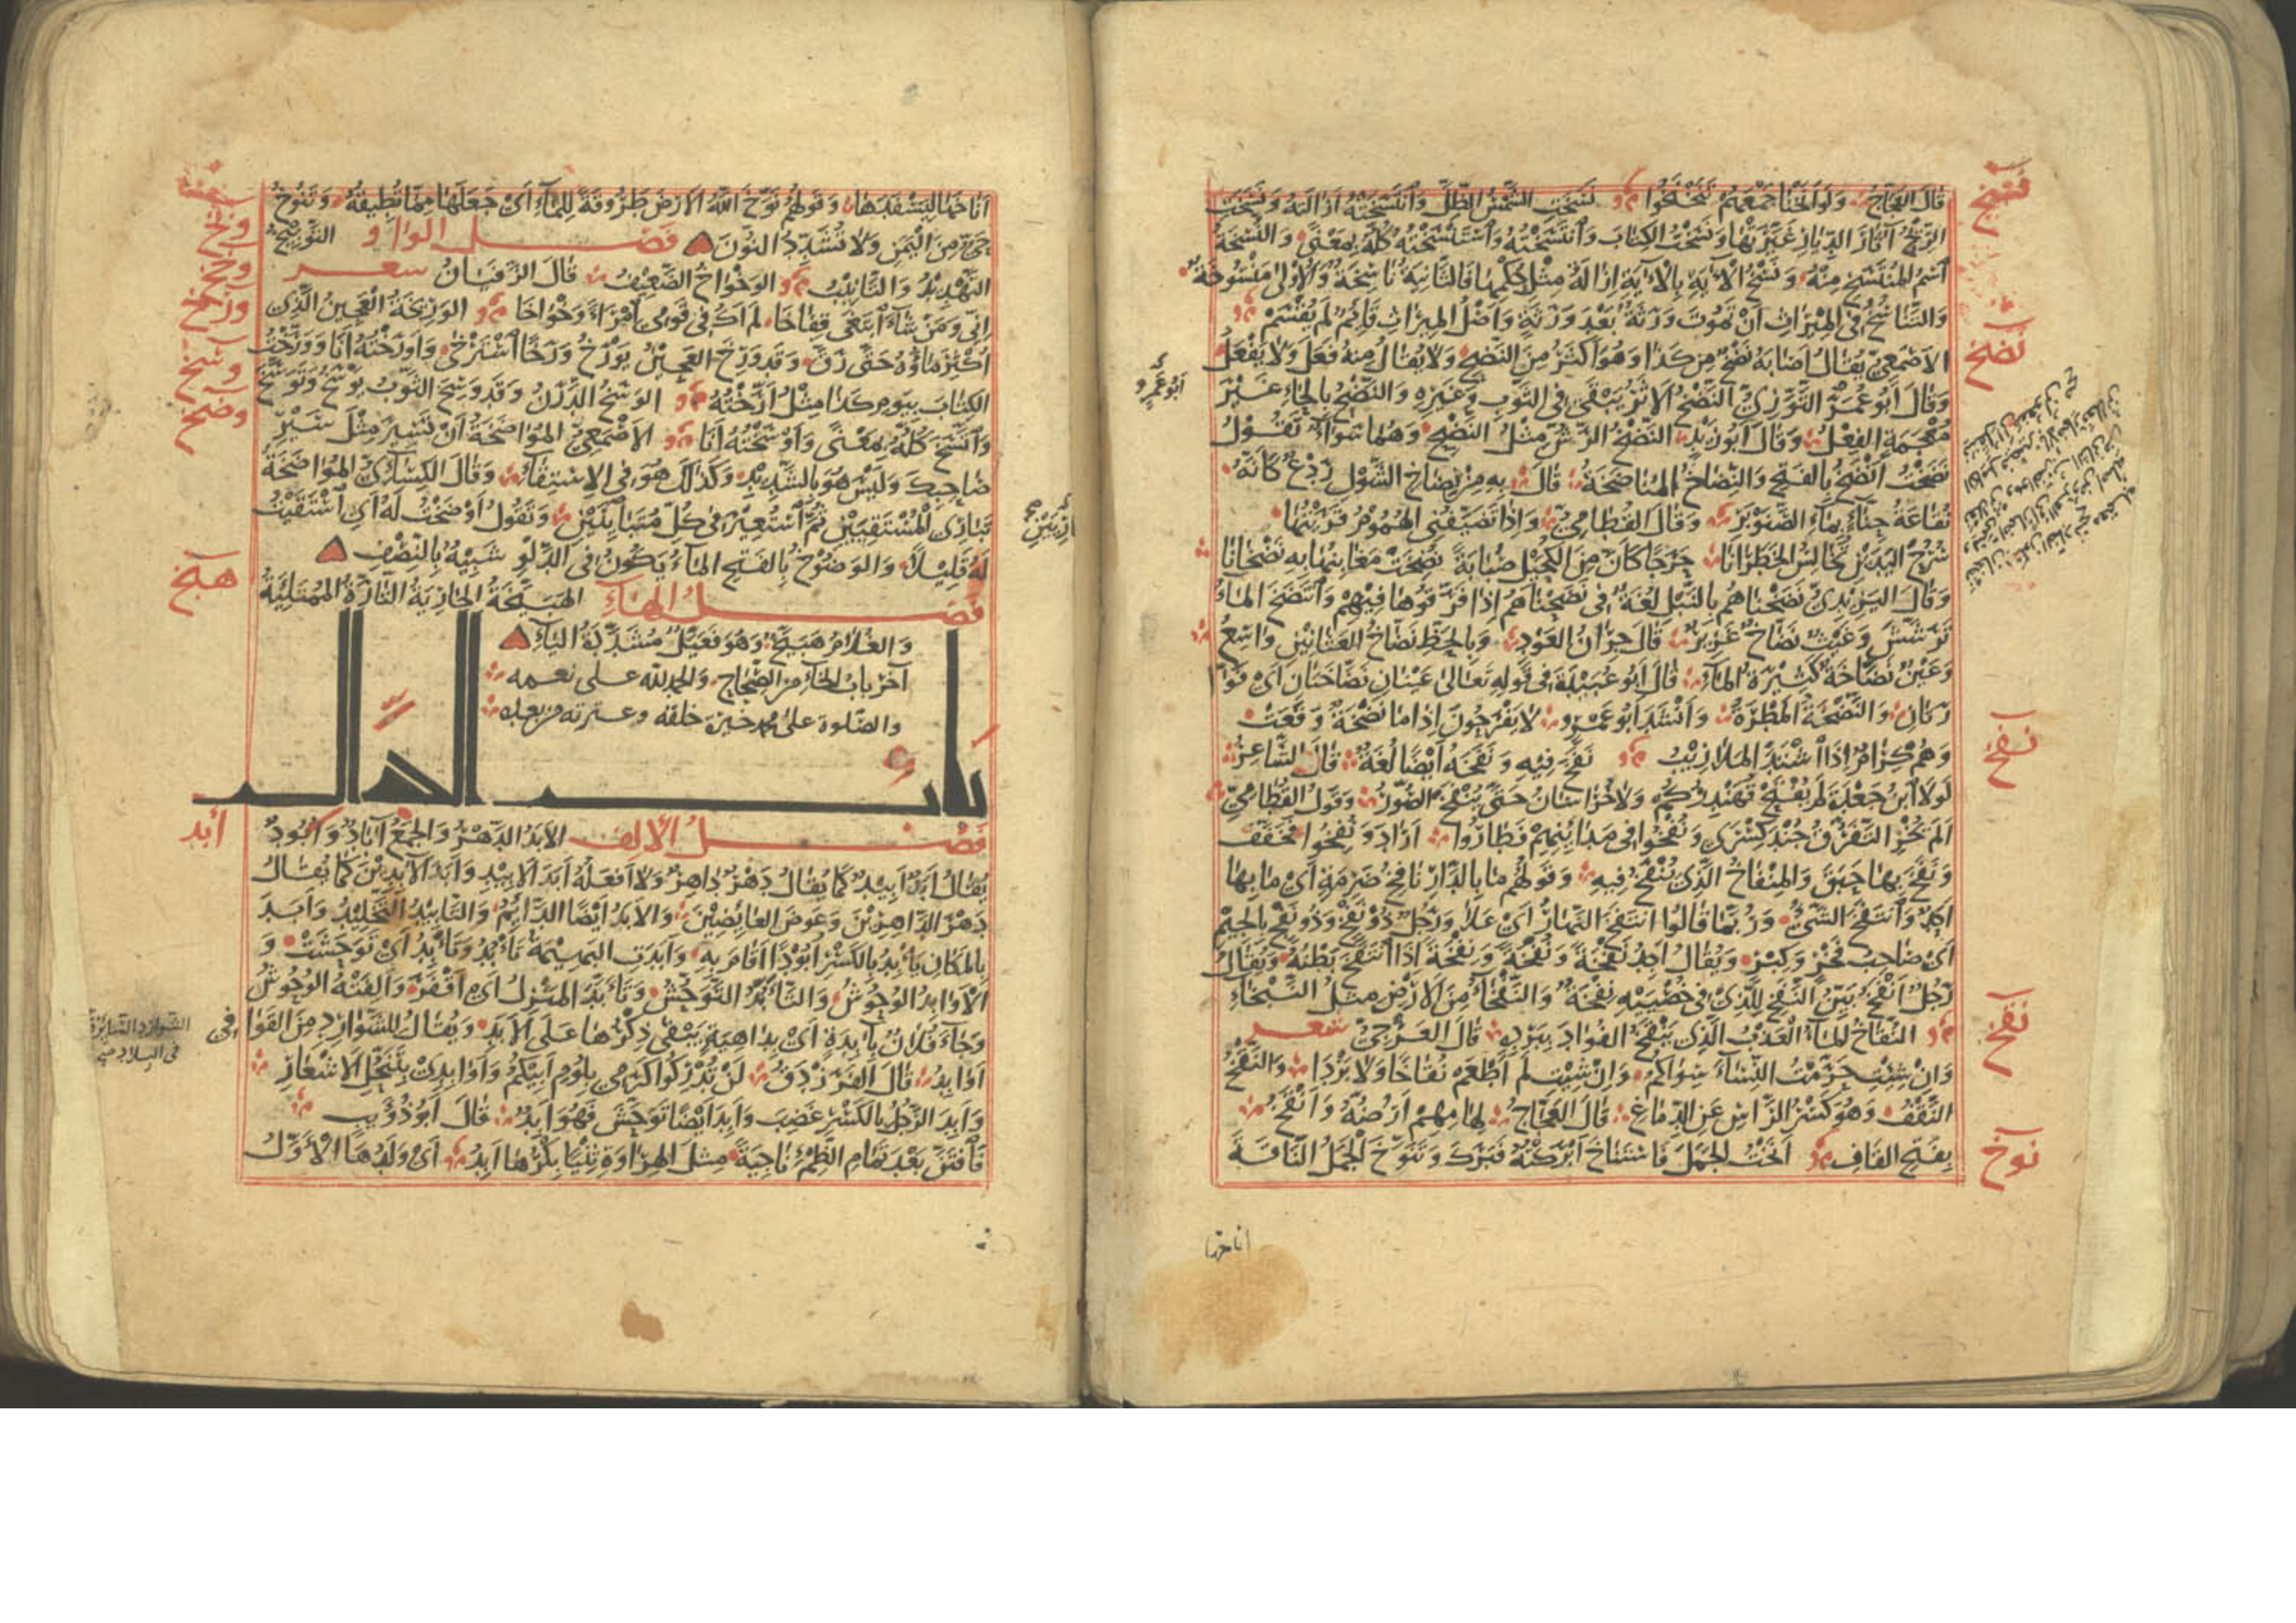 قَالَ العَجَّاجُ وَلَوْ أَنَخْنَا جَمْعَهُمْ تَنَخْنَخُوا نَسَخَتِ الشَّمْسُ الظِّلَّ وَانْتَسَخَتْهُ أَزَالَتْهُ وَنَسَخَتِ
الرِّيحُ آثَارَ الدِّيَارِ غَيَّرَتْهَا وَنَسَخْتُ الكِتَابَ وَانْتَسَخْتُهُ وَاسْتَنْسَخْتُهُ كُلُّهُ بِمَعْنًى وَالنُّسْخَةُ
اسْمُ المُنْتَسَخِ مِنْهُ وَنَسْخُ الآيَةِ بِالآيَةِ إِزَالَةُ مِثْلِ حُكْمِهَا فَالثَّانِيَةُ نَاسِخَةٌ وَالأُولَى مَنْسُوخَةٌ
وَالتَّنَاسُخُ فِي المِيرَاثِ أَنْ تَمُوتَ وَرَثَةٌ بَعْدَ وَرَثَةٍ وَأَصْلُ المِيرَاثِ قَائِمٌ لَمْ يُقْسَمْ
الأَصْمَعِيُّ يُقَالُ أَصَابَهُ نَضْخٌ مِنْ كَذَا وَهُوَ أَكْثَرُ مِنَ النَّضْحِ وَلَا يُقَالُ مِنْهُ فَعَلَ وَلَا يَفْعَلُ
وَقَالَ أَبُو عُمَرَ التَّوَّزِيُّ النَّضْخُ الأَثَرُ يَبْقَى فِي الثَّوْبِ وَغَيْرِهِ وَالنَّضْحُ بِالحَاءِ غَيْرَ
مُعْجَمَةٍ الفِعْلُ وَقَالَ أَبُو زَيْدٍ النَّضْخُ الرَّشُّ مِثْلُ النَّضْحِ وَهُمَا سَوَاءٌ تَقُولُ
نَضَخْتُ أَنْضَخُ بِالفَتْحِ وَالنِّضَاخُ المُنَاضَخَةُ قَالَ بِهِ مِنْ نِضَاخِ الشَّوْلِ رَدْعٌ كَأَنَّهُ
نُقَاعَةُ حِنَّاءٍ بِمَاءِ الصَّنَوْبَرِ وَقَالَ القُطَامِيُّ وَإِذَا تَضَيَّفُنِي الهُمُومُ قَرَيْتُهَا
سُرُحَ اليَدَيْنِ تُخَالِسُ الخَطَرَانَا حَرَجًا كَأَنَّ مِنَ الكُحَيْلِ صُبَابَةً نَضَخَتْ مَغَابِنُهَا بِهِ نَضَخَانَا
وَقَالَ اليَزِيدِيُّ نَضَخْنَاهُمْ بِالنَّبْلِ لُغَةٌ فِي نَضَحْنَاهُمْ إِذَا فَرَّقُوهَا فِيهِمْ وَانْتَضَخَ المَاءُ
تَرَشَّشَ وَغَيْثٌ نَضَّاخٌ غَزِيرٌ قَالَ جِرَانُ العَوْدِ وَبِالخَطِّ نَضَّاخُ العَثَانِينِ وَاسِعُ
وَعَيْنٌ نَضَّاخَةٌ كَثِيرَةُ المَاءِ قَالَ أَبُو عُبَيْدَةَ فِي قَوْلِهِ تَعَالَى عَيْنَانِ نَضَّاخَتَانِ أَيْ فَوَّا
رَتَانِ وَالنَّضْخَةُ المَطْرَةُ وَأَنْشَدَ أَبُو عَمْرٍو لَا يَفْرَحُونَ إِذَا مَا نَضْخَةٌ وَقَعَتْ
وَهُمْ كِرَامٌ إِذَا اشْتَدَّ المَلَازِيبُ نَفَخَ فِيهِ وَنَفَخَهُ أَيْضًا لُغَةٌ قَالَ الشَّاعِرُ
لَوْلَا ابْنُ جَعْدَةَ لَمْ يُفْتَحْ قُهُنْدُزُكُمْ وَلَا خُرَاسَانُ حَتَّى يُنْفَخَ الصُّورُ وَقَوْلُ القُطَامِيِّ
أَلَمْ يُخْزِ التَّفَرُّقُ جُنْدَ كِسْرَى وَنُفْخُوا فِي مَدَائِنِهِمْ فَطَارُوا أَرَادَ وَنُفِخُوا فَخَفَّفَ
وَنَفَخَ بِهَا حَبَقَ وَالمِنْفَاخُ الَّذِي يُنْفَخُ فِيهِ وَقَوْلُهُمْ مَا بِالدَّارِ نَافِخُ ضَرَمَةٍ أَيْ مَا بِهَا
أَحَدٌ وَانْتَفَخَ الشَّيْءُ وَرُبَّمَا قَالُوا انْتَفَخَ النَّهَارُ أَيْ عَلَا وَرَجُلٌ ذُو نَفْخٍ وَذُو نَفْجٍ بِالجِيمِ
أَيْ صَاحِبُ فَخْرٍ وَكِبْرٍ وَيُقَالُ أَجِدُ نَفْخَةً وَنُفْخَةً وَنِفْخَةً إِذَا انْتَفَخَ بَطْنُهُ وَيُقَالُ
رَجُلٌ أَنْفَخُ بَيِّنُ النَّفَخِ لِلَّذِي فِي خُصْيَيْهِ نَفْخَةٌ وَالنَّفْخَاءُ مِنَ الأَرْضِ مِثْلُ النَّبْخَاءِ
النُّقَاخُ المَاءُ العَذْبُ الَّذِي يَنْقَخُ الفُؤَادَ بِبَرْدِهِ قَالَ العَرْجِيُّ شعر
وَإِنْ شِئْتِ حَرَّمْتُ النِّسَاءَ سِوَاكُمُ وَإِنْ شِئْتِ لَمْ أَطْعَمْ نُقَاخًا وَلَا بَرْدَا وَالنَّقْخُ
النَّقْفُ وَهُوَ كَسْرُ الرَّأْسِ عَنِ الدِّمَاغِ قَالَ العَجَّاجُ لِهَامِهِمْ أَرُضُّهُ وَأَنْقَخُ
بِفَتْحِ القَافِ أَنَخْتُ الجَمَلَ فَاسْتَنَاخَ أَبْرَكْتُهُ فَبَرَكَ وَتَنَوَّخَ الجَمَلُ النَّاقَةَ
نسخ
نضخ
نفخ
نقخ
نوخ
أَبُو عَمْرٍو
اناخها
أَنَاخَهَا لِيَسْفَدَهَا وَقَوْلُهُمْ نَوَّخَ اللَّهُ الأَرْضَ طَرُوقَةً لِلْمَاءِ أَيْ جَعَلَهَا مِمَّا تُطِيقُهُ وَتَنُوخُ
حَيٌّ مِنَ اليَمَنِ وَلَا تُشَدِّدُ النُّونَ فَصْلُ الوَاوِ التَّوْبِيخُ
التَّهْدِيدُ وَالتَّأْنِيبُ الوَخْوَاخُ الضَّعِيفُ قَالَ الزَّفَيَانُ شعر
إِنِّي وَمَنْ شَاءَ ابْتَغَى قِفَاخَا لَمْ أَكُ فِي قَوْمِي امْرَأً وَخْوَاخَا الوَرِيخَةُ العَجِينُ الَّذِي
أُكْثِرَ مَاؤُهُ حَتَّى رَقَّ وَقَدْ وَرِخَ العَجِينُ يَوْرَخُ وَرَخًا اسْتَرْخَى وَأَوْرَخْتُهُ أَنَا وَوَرَّخْتُ
الكِتَابَ بِيَوْمِ كَذَا مِثْلُ أَرَّخْتُهُ الوَسَخُ الدَّرَنُ وَقَدْ وَسِخَ الثَّوْبُ يَوْسَخُ وَتَوَسَّخَ
وَاتَّسَخَ كُلُّهُ بِمَعْنًى وَأَوْسَخْتُهُ أَنَا الأَصْمَعِيُّ المُوَاضَخَةُ أَنْ تَسِيرَ مِثْلَ سَيْرِ
صَاحِبِكَ وَلَيْسَ هُوَ بِالشَّدِيدِ وَكَذَلِكَ هُوَ فِي الاسْتِقَاءِ وَقَالَ الكِسَائِيُّ المُوَاضَخَةُ
تَبَارِي المُسْتَقِيَيْنِ ثُمَّ اسْتُعِيرَ فِي كُلِّ مُتَبَارِيَيْنِ وَتَقُولُ أَوْضَخْتُ لَهُ أَيِ اسْتَقَيْتُ
لَهُ قَلِيلًا وَالوَضُوخُ بِالفَتْحِ المَاءُ يَكُونُ فِي الدَّلْوِ شَبِيهٌ بِالنِّصْفِ
فَصْلُ الهَاءِ الهَبَيَّخَةُ الجَارِيَةُ التَّارَّةُ المُمْتَلِئَةُ
وَالغُلَامُ هَبَيَّخٌ وَهُوَ فَعَيَّلٌ مُشَدَّدَةَ اليَاءِ
آخر باب الخاء من الصحاح والحمد لله على نعمه
والصلوة على محمد خير خلقه وعترته من بعده
باب الدال
فَصْلُ الأَلِفِ الأَبَدُ الدَّهْرُ وَالجَمْعُ آبَادٌ وَأُبُودٌ
يُقَالُ أَبَدٌ أَبِيدٌ كَمَا يُقَالُ دَهْرٌ دَاهِرٌ وَلَا أَفْعَلُهُ أَبَدَ الأَبِيدِ وَأَبَدَ الآبِدِينَ كَمَا يُقَالُ
دَهْرَ الدَّاهِرِينَ وَعَوْضَ العَائِضِينَ وَالأَبَدُ أَيْضًا الدَّائِمُ وَالتَّأْبِيدُ التَّخْلِيدُ وَأَبَدَ
بِالمَكَانِ يَأْبِدُ بِالكَسْرِ أُبُودًا أَقَامَ بِهِ وَأَبَدَتِ البَهِيمَةُ تَأْبُدُ وَتَأْبِدُ أَيْ تَوَحَّشَتْ وَ
الأَوَابِدُ الوُحُوشُ وَالتَّأَبُّدُ التَّوَحُّشُ وَتَأَبَّدَ المَنْزِلُ أَيْ أَقْفَرَ وَأَلِفَتْهُ الوُحُوشُ
وَجَاءَ فُلَانٌ بِآبِدَةٍ أَيْ بِدَاهِيَةٍ يَبْقَى ذِكْرُهَا عَلَى الأَبَدِ وَيُقَالُ لِلشَّوَارِدِ مِنَ القَوَافِي
أَوَابِدُ قَالَ الفَرَزْدَقُ لَنْ تُدْرِكُوا كَرَمِي بِلُؤْمِ أَبِيكُمُ وَأَوَابِدِي بِتَنَحُّلِ الأَشْعَارِ
وَأَبِدَ الرَّجُلُ بِالكَسْرِ غَضِبَ وَأَبِدَ أَيْضًا تَوَحَّشَ فَهُوَ أَبِدٌ قَالَ أَبُو ذُؤَيْبٍ
فَافْتَنَّ بَعْدَ تَمَامِ الظِّمْءِ نَاجِيَةً مِثْلَ الهِرَاوَةِ ثِنْيًا بِكْرُهَا أَبِدُ أَيْ وَلَدُهَا الأَوَّلُ
وبخ
وخخ
ورخ
وسخ
وضخ
هبخ
أبد